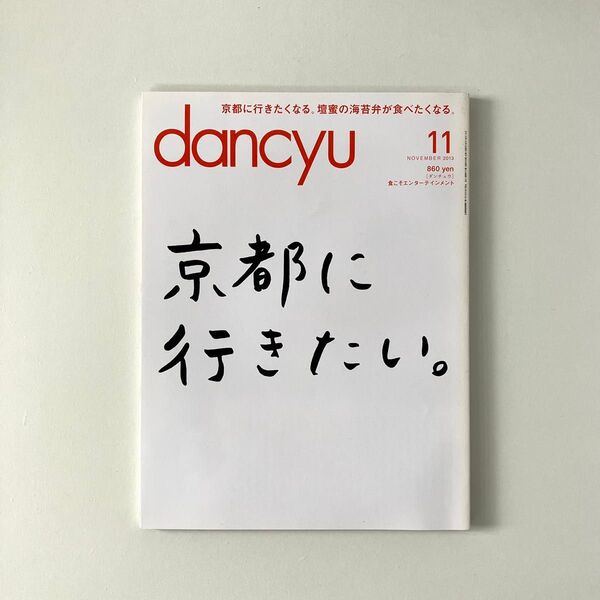 京都に行きたくなる。壇蜜の海苔弁が食べたくなる。
dancyu
11
NOVEMBER 2013
860 yen
[ダンチュウ]
食こそエンターテインメント
京都に
行きたい。